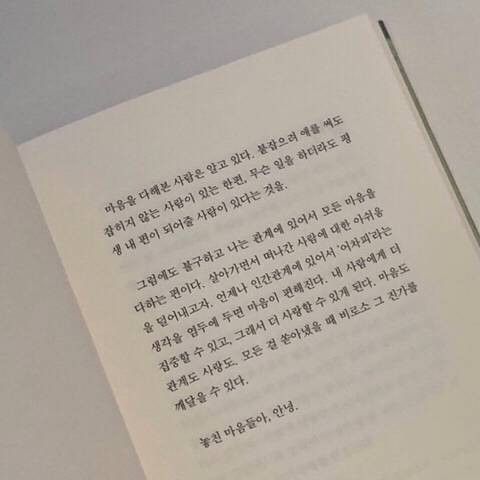 마음을 다해본 사람은 알고 있다. 붙잡으려 애를 써도
잡히지 않는 사람이 있는 한편, 무슨 일을 하더라도 평
생 내 편이 되어줄 사람이 있다는 것을.
그럼에도 불구하고 나는 관계에 있어서 모든 마음을
다하는 편이다. 살아가면서 떠나간 사람에 대한 아쉬움
을 덜어내고자. 언제나 인간관계에 있어서 '어차피'라는
생각을 염두에 두면 마음이 편해진다. 내 사람에게 더
집중할 수 있고, 그래서 더 사랑할 수 있게 된다. 마음도
관계도 사랑도, 모든 걸 쏟아냈을 때 비로소 그 진가를
깨달을 수 있다.
놓친 마음들아, 안녕.